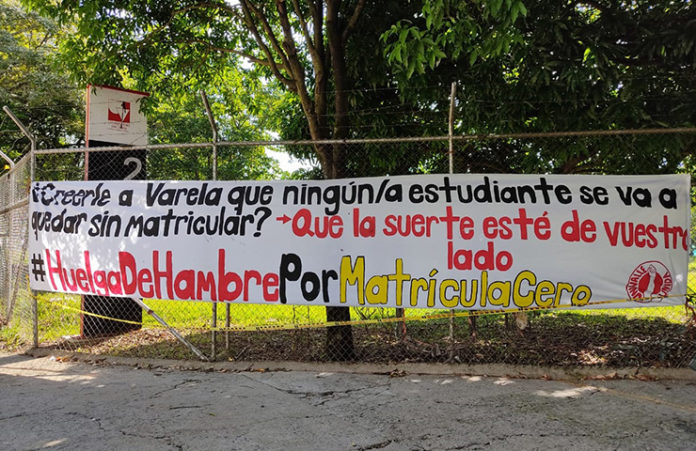 ¿Creerle a Varela que ningún/a estudiante se va a
quedar sin matricular? →Que la suerte esté de vuestro
lado
#HuelgaDeHambrePorMatrículaCero
2